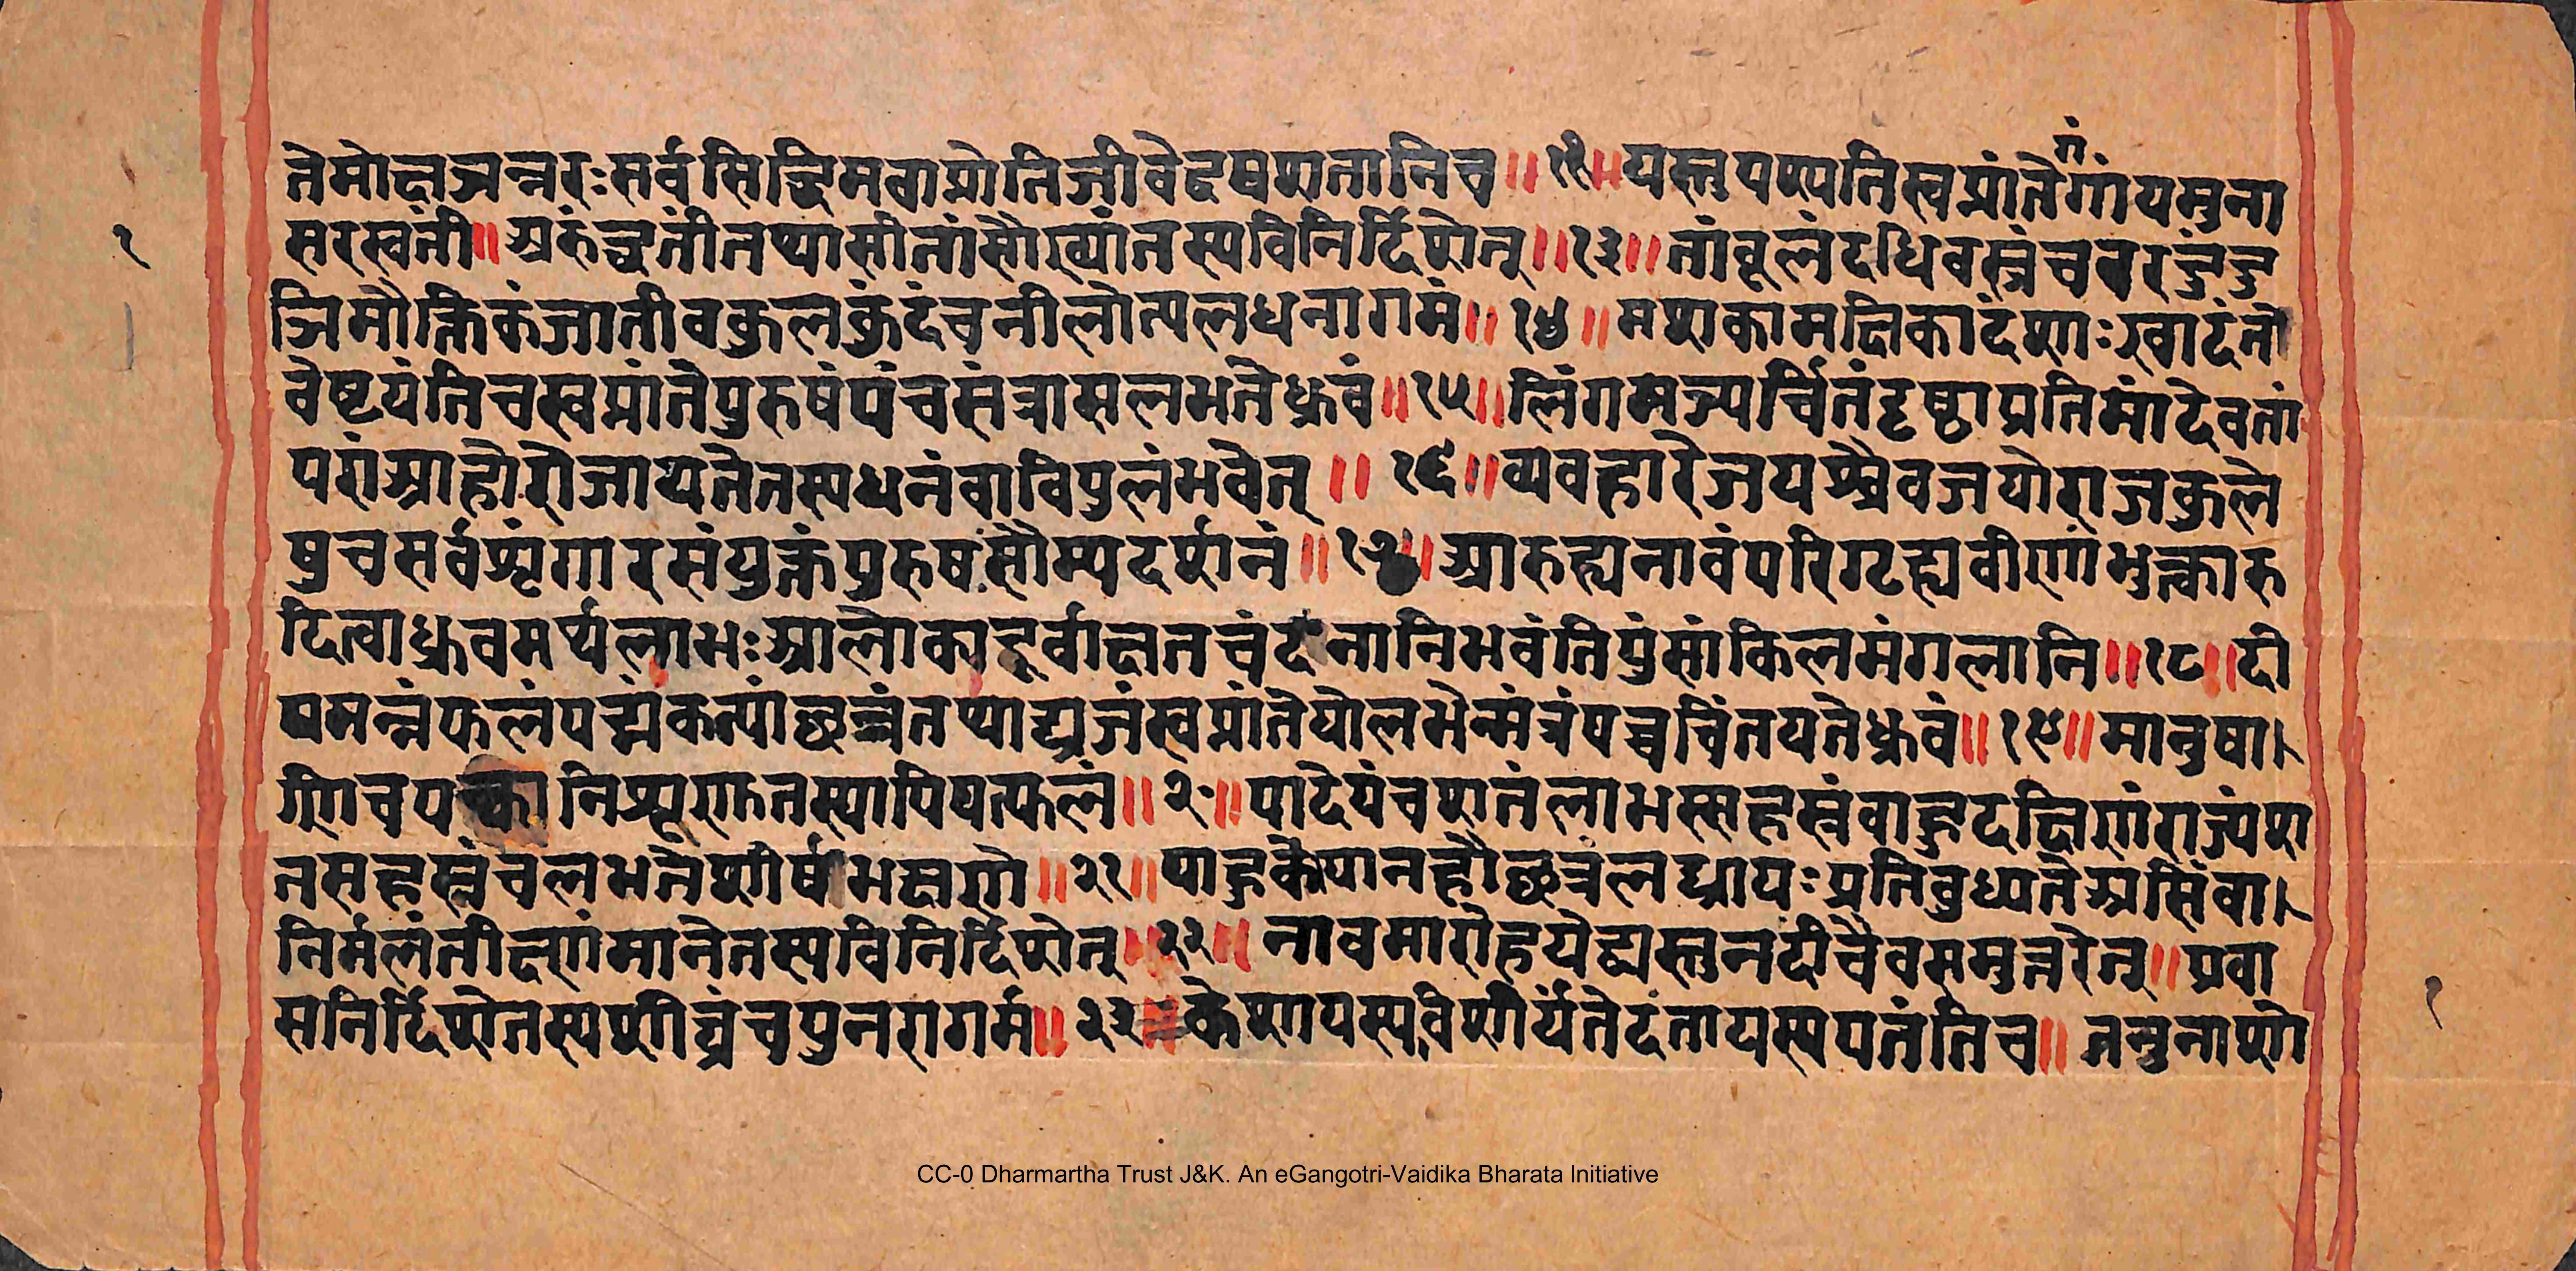 गं
तेमोक्षाजन्नरःसर्वसिद्धिमवाप्नोतिजीवेद्वषशतानिच॥१२॥यस्तुपश्यतिस्वप्नांतेगांयमुना
सरस्वंतीं॥अरुंन्धतींतथासीतांसौख्यांतस्यविनिर्दिशेत्॥१३॥तांवूलंदधिवस्त्रंचवरङ्गंङ्ग
१
जिमौक्तिकंजातीवकुलकुंदंचनीलोत्पलधनागमं॥१४॥मशकामक्षिकादंशाःखादंतो
वेष्टयंतिचस्वप्नांतेपुरुषंपंचसंत्रासलभतेध्रुवं॥१५॥लिंगमभ्यर्चितंदृष्ठाप्रतिमांदेवतां
परांआहोरोजायतेतस्यधनंवाविपुलंभवेत्॥१६॥व्यवहारेजयश्चैवजयोराजकुले
षुचसर्वशृंगारसंयुक्तंपुरुषंसौम्यदर्शनं॥१७॥आरुह्यनावंपरिगृह्यवीणांभुत्कारु
दित्वाध्रुवमर्थलाभःआलोक्यदूर्वाक्षतचंदनानिभवंतिपुंसांकिलमंगलानि॥१८॥दी
पमन्नंफलंपद्मंकन्यांछत्रंतथाध्वजंस्वप्नांतेयोलभेन्मंत्रंपच्चचिंतयतेध्रुवं॥१९॥मानुषा।
णिचपक्कानिशृणुतस्यापियत्फलं॥२०॥पादेयंचशतंलाभस्सहस्रंवाहुदक्षिणांराज्यंश
तसहस्रंचलभतेशीर्षभक्षणे॥२१॥पादुकेपानहौछत्रंलब्धायःप्रतिवुध्यतेअसिंवा।
निर्मलंतीक्ष्णंमानेतस्यविनिर्दिशेत्॥२२॥नावमारोहयेद्यस्तुनदीचैवसमुत्तरेत्॥प्रवा
सनिर्दिशेतस्यशीघ्रंचपुनरागमं॥२३॥केशायस्यविशीर्यंतेदंतायस्यपतंतिच॥तत्तुनाशो
१
CC-0 Dharmartha Trust J&K. An eGangotri-Vaidika Bharata Initiative